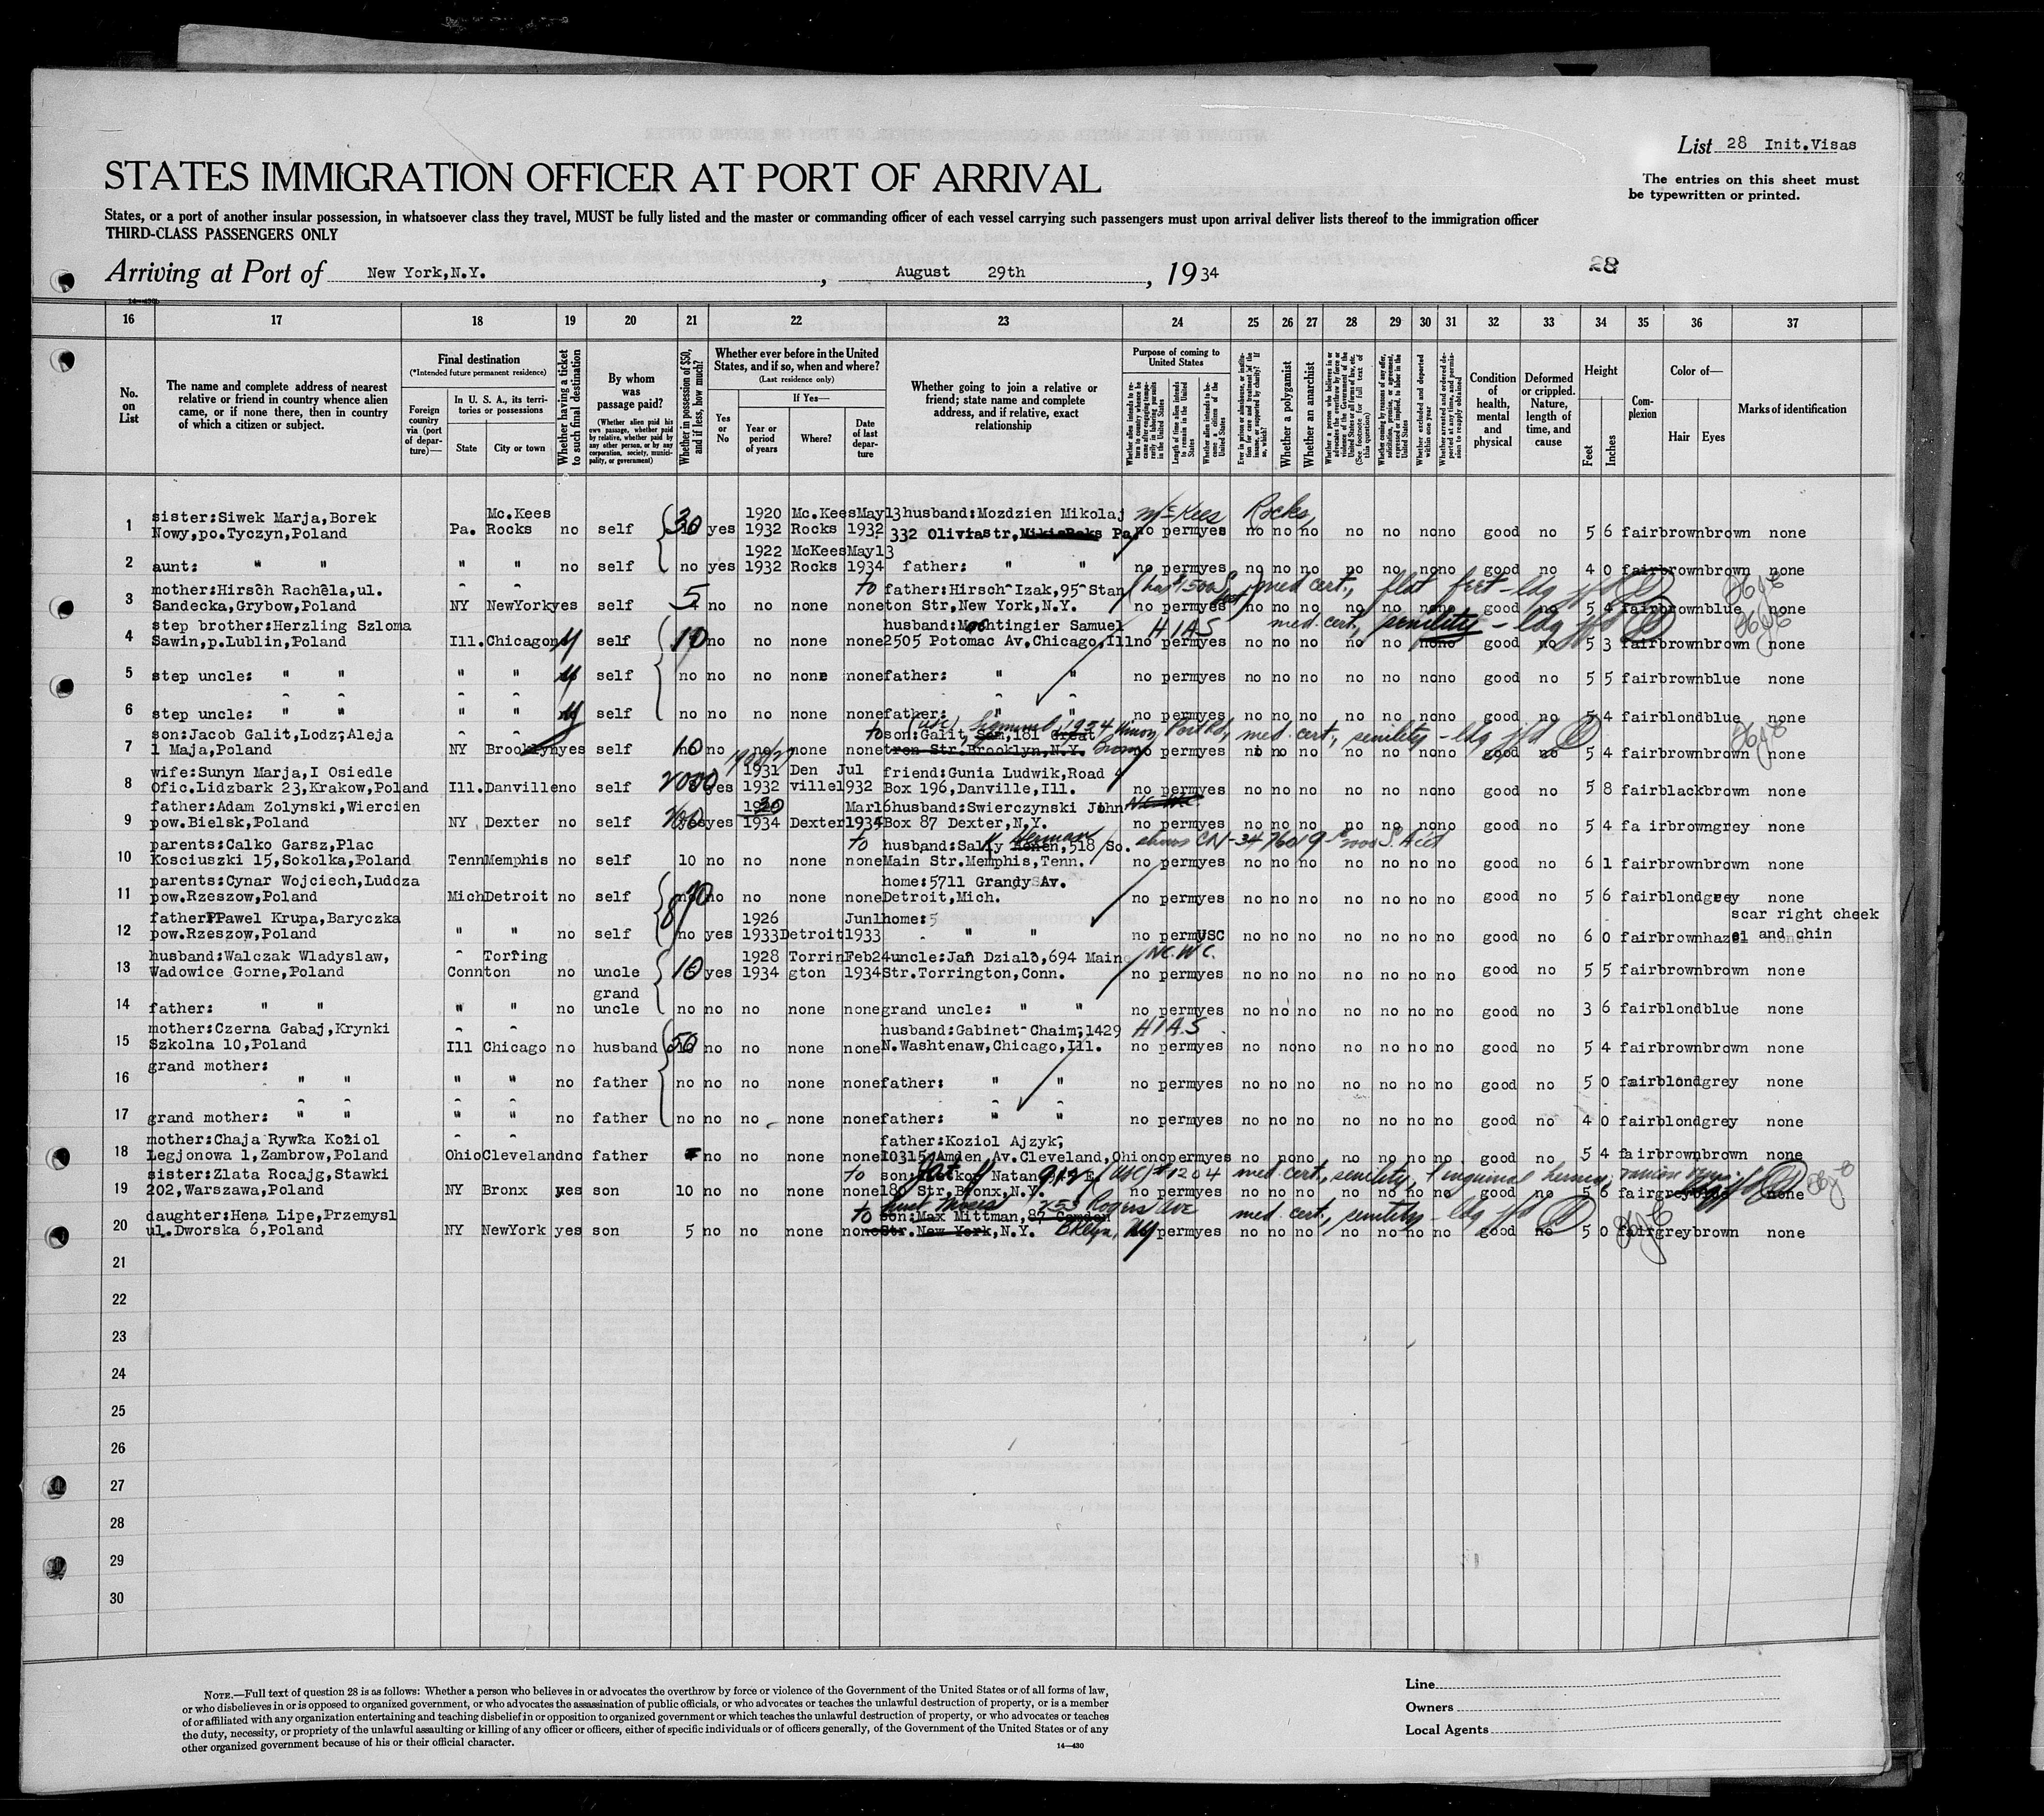 List 28 Init.Visas
STATES IMMIGRATION OFFICER AT PORT OF ARRIVAL
The entries on this sheet must
be typewritten or printed.
States, or a port of another insular possession, in whatsoever class they travel, MUST be fully listed and the master or commanding officer of each vessel carrying such passengers must upon arrival deliver lists thereof to the immigration officer
THIRD-CLASS PASSENGERS ONLY
Arriving at Port of New York,N.Y. , August 29th , 1934
28
16 17 18 19 20 21 22 23 24 25 26 27 28 29 30 31 32 33 34 35 36 37
No. on List
The name and complete address of nearest relative or friend in country whence alien came, or if none there, then in country of which a citizen or subject.
Final destination
(*Intended future permanent residence)
Foreign country via (port of departure)—
In U. S. A., its territories or possessions
State City or town
Whether having a ticket to such final destination
By whom was passage paid?
(Whether alien paid his own passage, whether paid by relative, whether paid by any other person, or by any corporation, society, municipality, or government)
Whether in possession of $50, and if less, how much?
Whether ever before in the United States, and if so, when and where?
(Last residence only)
Yes or No
If Yes—
Year or period of years
Where?
Date of last departure
Whether going to join a relative or friend; state name and complete address, and if relative, exact relationship
Purpose of coming to United States
Whether alien intends to return to country whence he came after engaging temporarily in laboring pursuits in the United States
Length of time alien intends to remain in the United States
Whether alien intends to become a citizen of the United States
Ever in prison or almshouse, or institution for care and treatment of the insane, or supported by charity? If so, which?
Whether a polygamist
Whether an anarchist
Condition of health, mental and physical
Deformed or crippled. Nature, length of time, and cause
Height
Feet Inches
Complexion
Color of—
Hair Eyes
Marks of identification
1 sister:Siwek Marja,Borek Nowy,po.Tyczyn,Poland Pa. Mc.Kees Rocks no self 30 yes 1920 1932 Mc.Kees Rocks May13 1932 husband:Mozdzien Mikolaj 332 Olivia str, Pa McKees Rocks, no perm yes no no no no no no no good no 5 6 fair brown brown none
2 aunt: " " " " no self no yes 1922 1932 McKees Rocks May13 1934 father: " " no perm yes no no no no no no no good no 4 0 fair brown brown none
3 mother:Hirsch Rachela,ul. Sandecka,Grybow,Poland NY NewYork yes self 5 no no none none to father:Hirsch Izak,95 Stanton Str,New York,N.Y. med cert., flat feet no perm yes no no no no no no no good no 5 4 fair brown blue none
4 step brother:Herzling Szloma Sawin,p.Lublin,Poland Ill. Chicago self 10 no no none none husband: Samuel 2505 Potomac Av,Chicago,Ill HIAS med. cert., senility no perm yes no no no no no no no good no 5 3 fair brown brown none
5 step uncle: " " " " y self no no no none none father: " " no perm yes no no no no no no no good no 5 5 fair brown blue none
6 step uncle: " " " " y self no no no none none father: " " no perm yes no no no no no no no good no 5 4 fair blond blue none
7 son:Jacob Galit,Lodz,Aleja 1 Maja,Poland NY Brooklyn yes self 10 no no none none to son:Galit, Sam,181 tron Str.Brooklyn,N.Y. med cert., senility no perm yes no no no no no no no good no 5 4 fair brown brown none
8 wife:Sunyn Marja,I Osiedle Ofic.Lidzbark 23,Krakow,Poland Ill. Danville no self yes 1931 1932 Danville Jul 1932 friend:Gunia Ludwik,Road 4 Box 196,Danville,Ill. no perm yes no no no no no no no good no 5 8 fair black brown none
9 father:Adam Zolynski,Wiercien pow.Bielsk,Poland NY Dexter no self yes 1930 1934 Dexter Mar16 1934 husband:Swierczynski John Box 87 Dexter,N.Y. no perm yes no no no no no no no good no 5 4 fair brown grey none
10 parents:Calko Garsz,Plac Kosciuszki 15,Sokolka,Poland Tenn Memphis no self 10 no no none none to husband:Salky Herman,518 So. Main Str.Memphis,Tenn. no perm yes no no no no no no no good no 6 1 fair brown brown none
11 parents:Cynar Wojciech,Ludcza pow.Rzeszow,Poland Mich Detroit no self no no none none home:5711 Grandy Av. Detroit,Mich. no perm yes no no no no no no no good no 5 6 fair blond grey none
12 father Pawel Krupa,Baryczka pow.Rzeszow,Poland " " no self no yes 1926 1933 Detroit Jun1 1933 home: " " no perm USC no no no no no no no good no 6 0 fair brown hazel scar right cheek and chin
13 husband:Walczak Wladyslaw, Wadowice Gorne,Poland Conn Torrington no uncle 10 yes 1928 1934 Torrington Feb24 1934 uncle:Jan Dzialo,694 Main Str.Torrington,Conn. N.C.W.C. no perm yes no no no no no no no good no 5 5 fair brown brown none
14 father: " " " " no grand uncle no no no none none grand uncle: " " no perm yes no no no no no no no good no 3 6 fair blond blue none
15 mother:Czerna Gabaj,Krynki Szkolna 10,Poland Ill Chicago no husband 50 no no none none husband:Gabinet Chaim,1429 N.Washtenaw,Chicago,Ill. HIAS no perm yes no no no no no no no good no 5 4 fair brown brown none
16 grand mother: " " " " no father no no no none none father: " " no perm yes no no no no no no no good no 5 0 fair blond grey none
17 grand mother: " " " " no father no no no none none father: " " no perm yes no no no no no no no good no 4 0 fair blond grey none
18 mother:Chaja Rywka Koziol Legjonowa 1,Zambrow,Poland Ohio Cleveland no father no no none none father:Koziol Ajzyk, 10315 Amden Av.Cleveland,Ohio no perm yes no no no no no no no good no 5 4 fair brown brown none
19 sister:Zlata Rocajg,Stawki 202,Warszawa,Poland NY Bronx yes son 10 no no none none to son: Natan 180 Str,Bronx,N.Y. med cert., senility, inguinal hernia no perm yes no no no no no no no good no 5 6 fair grey blue none
20 daughter:Hena Lipe,Przemysl ul.Dworska 6,Poland NY NewYork yes son 5 no no none none to son:Max Mittman,87 Camden Str. New York,N.Y. 253 Rogers Ave Bklyn, NY med. cert., senility perm yes no no no no no no no good no 5 0 fair grey brown none
21
22
23
24
25
26
27
28
29
30
NOTE.—Full text of question 28 is as follows: Whether a person who believes in or advocates the overthrow by force or violence of the Government of the United States or of all forms of law,
or who disbelieves in or is opposed to organized government, or who advocates the assassination of public officials, or who advocates or teaches the unlawful destruction of property, or is a member
of or affiliated with any organization entertaining and teaching disbelief in or opposition to organized government or which teaches the unlawful destruction of property, or who advocates or teaches
the duty, necessity, or propriety of the unlawful assaulting or killing of any officer or officers, either of specific individuals or of officers generally, of the Government of the United States or of any
other organized government because of his or their official character.
14—430
Line
Owners
Local Agents